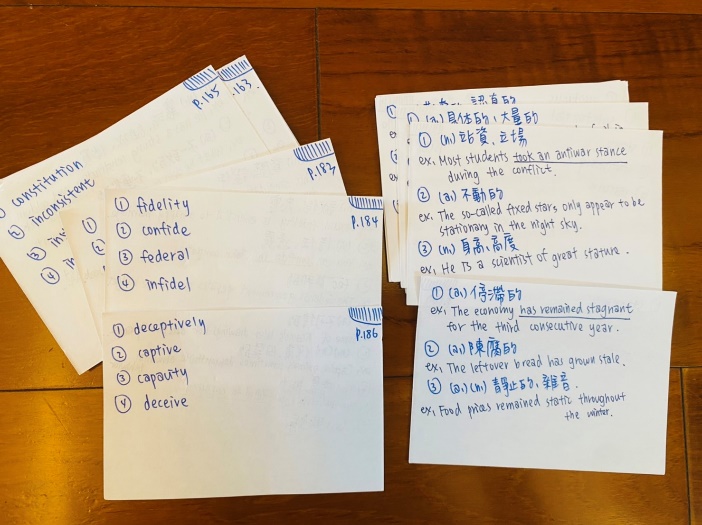 P.163.
P.165
constitution
② inconsistent
③
④
P.183
①
②
① fidelity
② confide
③ federal
④ infidel
P.184
① deceptively
② captive
③ capauty
④ deceive
P.186
① 認真的
① (a.) 具体的、大量的
① (n.) 站資、立場
ex, Most students took an antiwar stance
during the conflict.
② (a.) 不動的
ex, The so-called fixed stars only appear to be
stationary in the night sky.
③ (n.) 身高、高度
ex, He Is a scientist of great stature.
① (a.) 停滯的
ex, The economy has remained stagnant
for the third consecutive year.
② (a.) 陳腐的
ex, The leftover bread has grown stale.
③ (a.) (n.) 靜止的、雜音.
ex, Food prices remained static throughout
the winter.